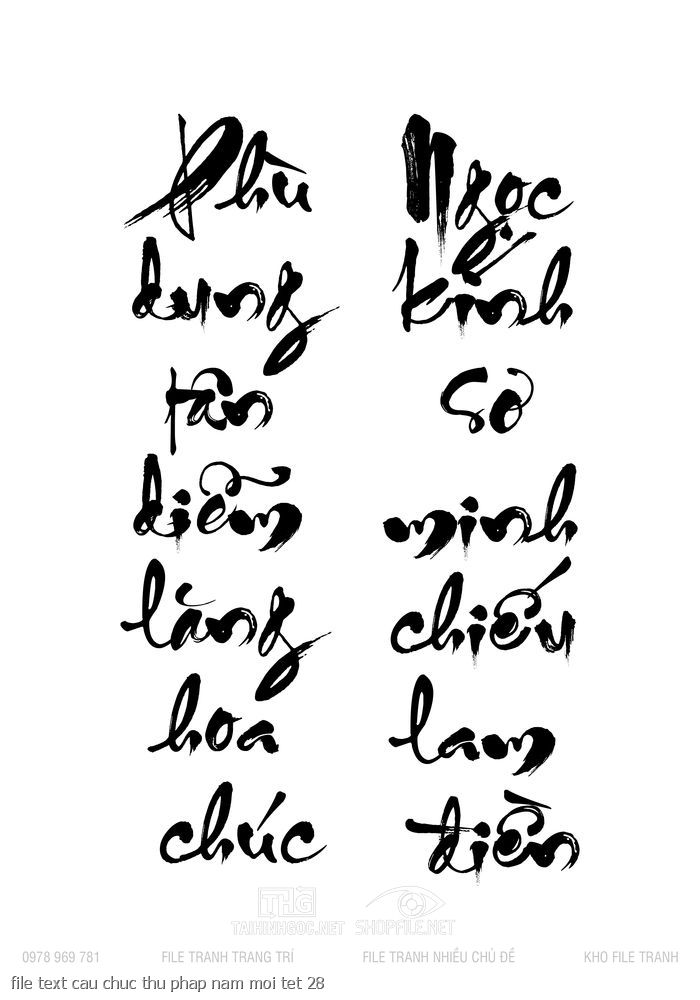 Phù
dung
tân
diễm
lăng
hoa
chúc
Ngọc
kính
sơ
minh
chiếu
lam
điền
THG
TAIHINHGOC.NET
SHOPFILE.NET
0978 969 781
FILE TRANH TRANG TRÍ
FILE TRANH NHIỀU CHỦ ĐỀ
KHO FILE TRANH
file text cau chuc thu phap nam moi tet 28